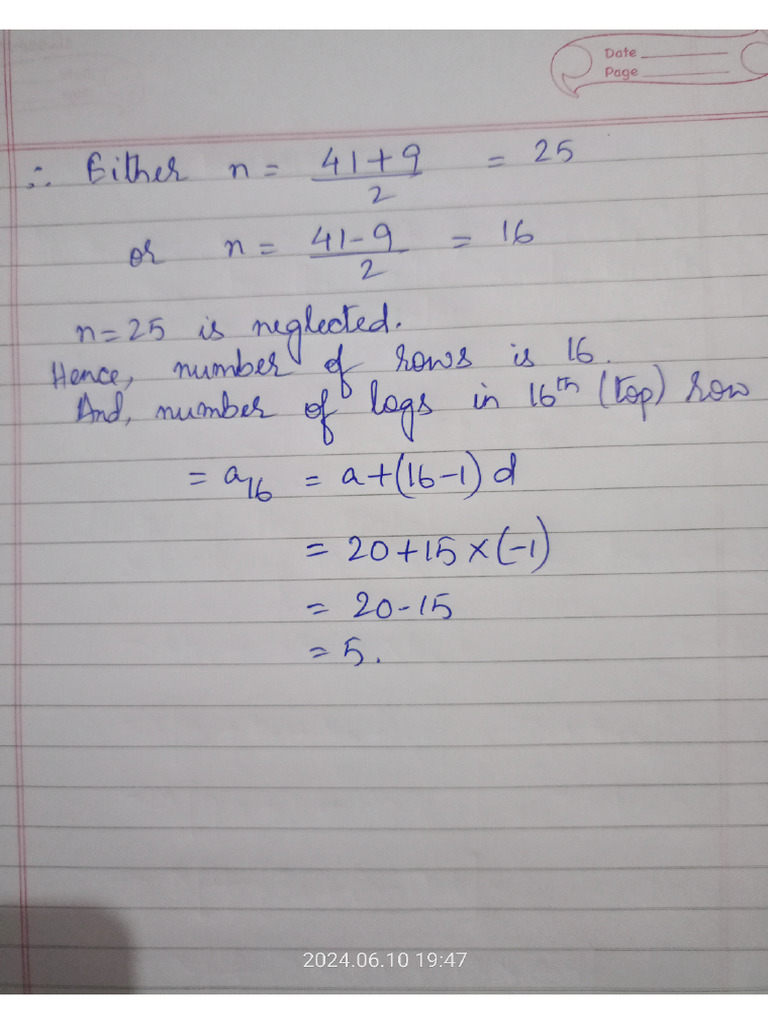 Date
Page
∴ Either n = 41+9/2 = 25
or n = 41-9/2 = 16
n=25 is neglected.
Hence, number of rows is 16.
And, number of logs in 16th (top) row
= a16 = a+(16-1) d
= 20+15×(-1)
= 20-15
= 5.
2024.06.10 19:47